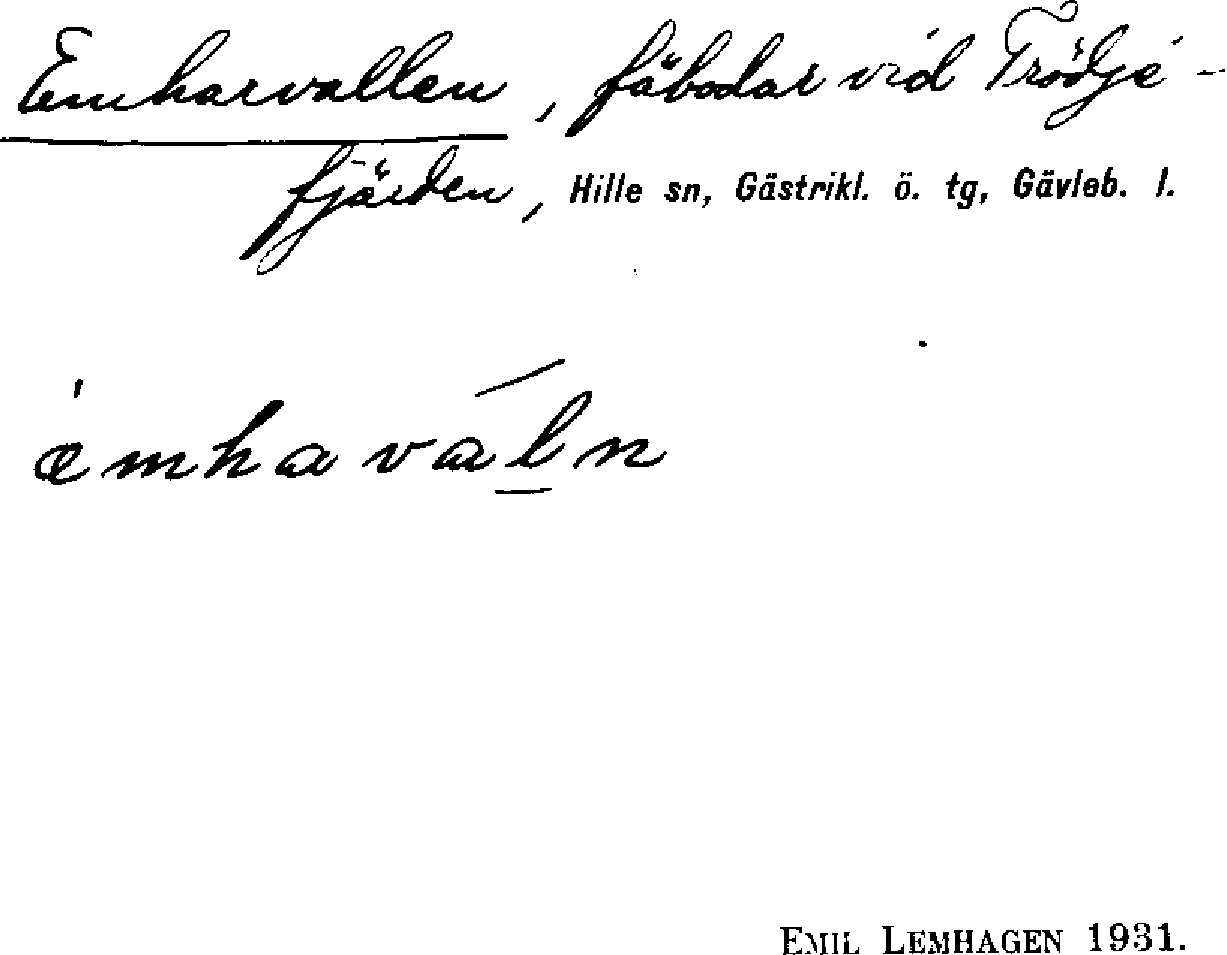 Emharvallen, fäbodar vid Trödje-
fjärden, Hille sn, Gästrikl. ö. tg, Gävleb. l.
ämhavaln
EMIL LEMHAGEN 1931.